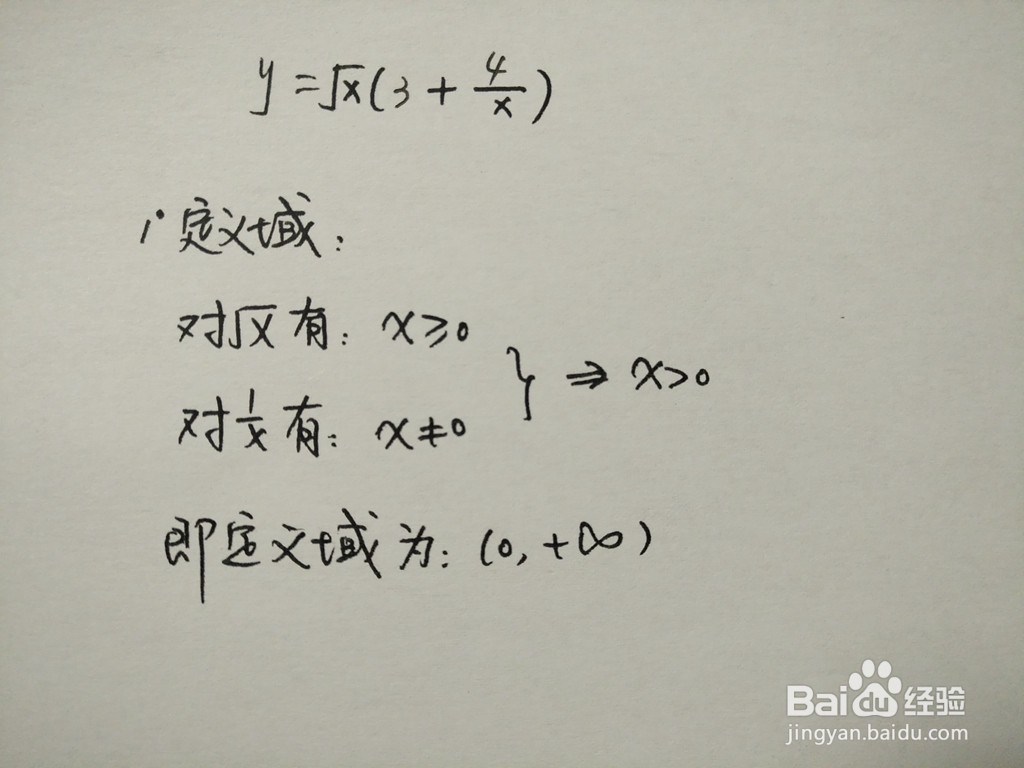 y=√x(3+4/x)
1°定义域:
对√x有: x≥0
对1/x有: x≠0
} ⇒ x>0
即定义域为:(0,+∞)
Bai du 经验
jingyan.baidu.com